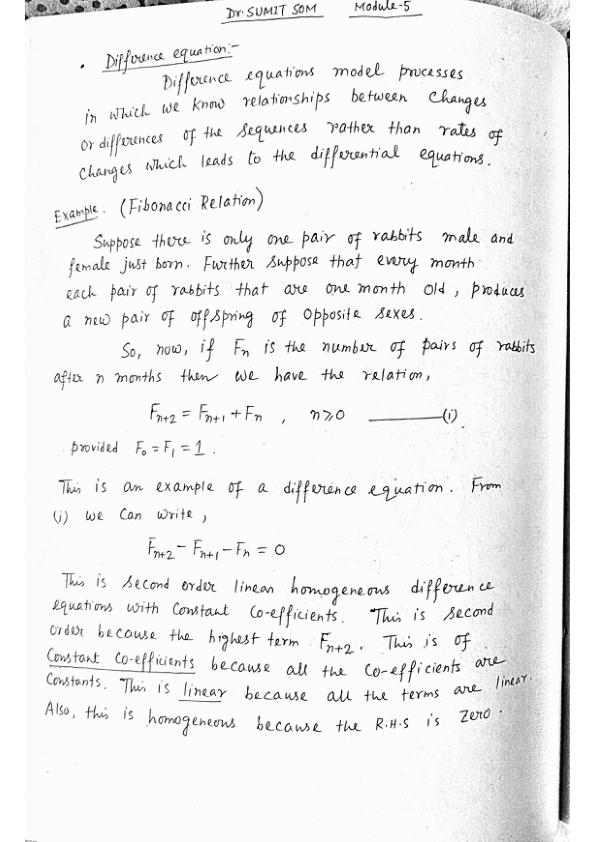 Dr. SUMIT SOM Module-5
• Difference equation:-
Difference equations model processes
in which we know relationships between changes
or differences of the sequences rather than rates of
changes which leads to the differential equations.
Example. (Fibonacci Relation)
Suppose there is only one pair of rabbits male and
female just born. Further suppose that every month
each pair of rabbits that are one month old, produces
a new pair of offspring of opposite sexes.
So, now, if Fn is the number of pairs of rabbits
after n months then we have the relation,
Fn+2 = Fn+1 + Fn , n≥0 ———(i).
provided F0 = F1 = 1.
This is an example of a difference equation. From
(i) we can write,
Fn+2 - Fn+1 - Fn = 0
This is second order linear homogeneous difference
equations with constant co-efficients. This is second
order because the highest term Fn+2. This is of
constant co-efficients because all the co-efficients are
constants. This is linear because all the terms are linear.
Also, this is homogeneous because the R.H.S is zero.